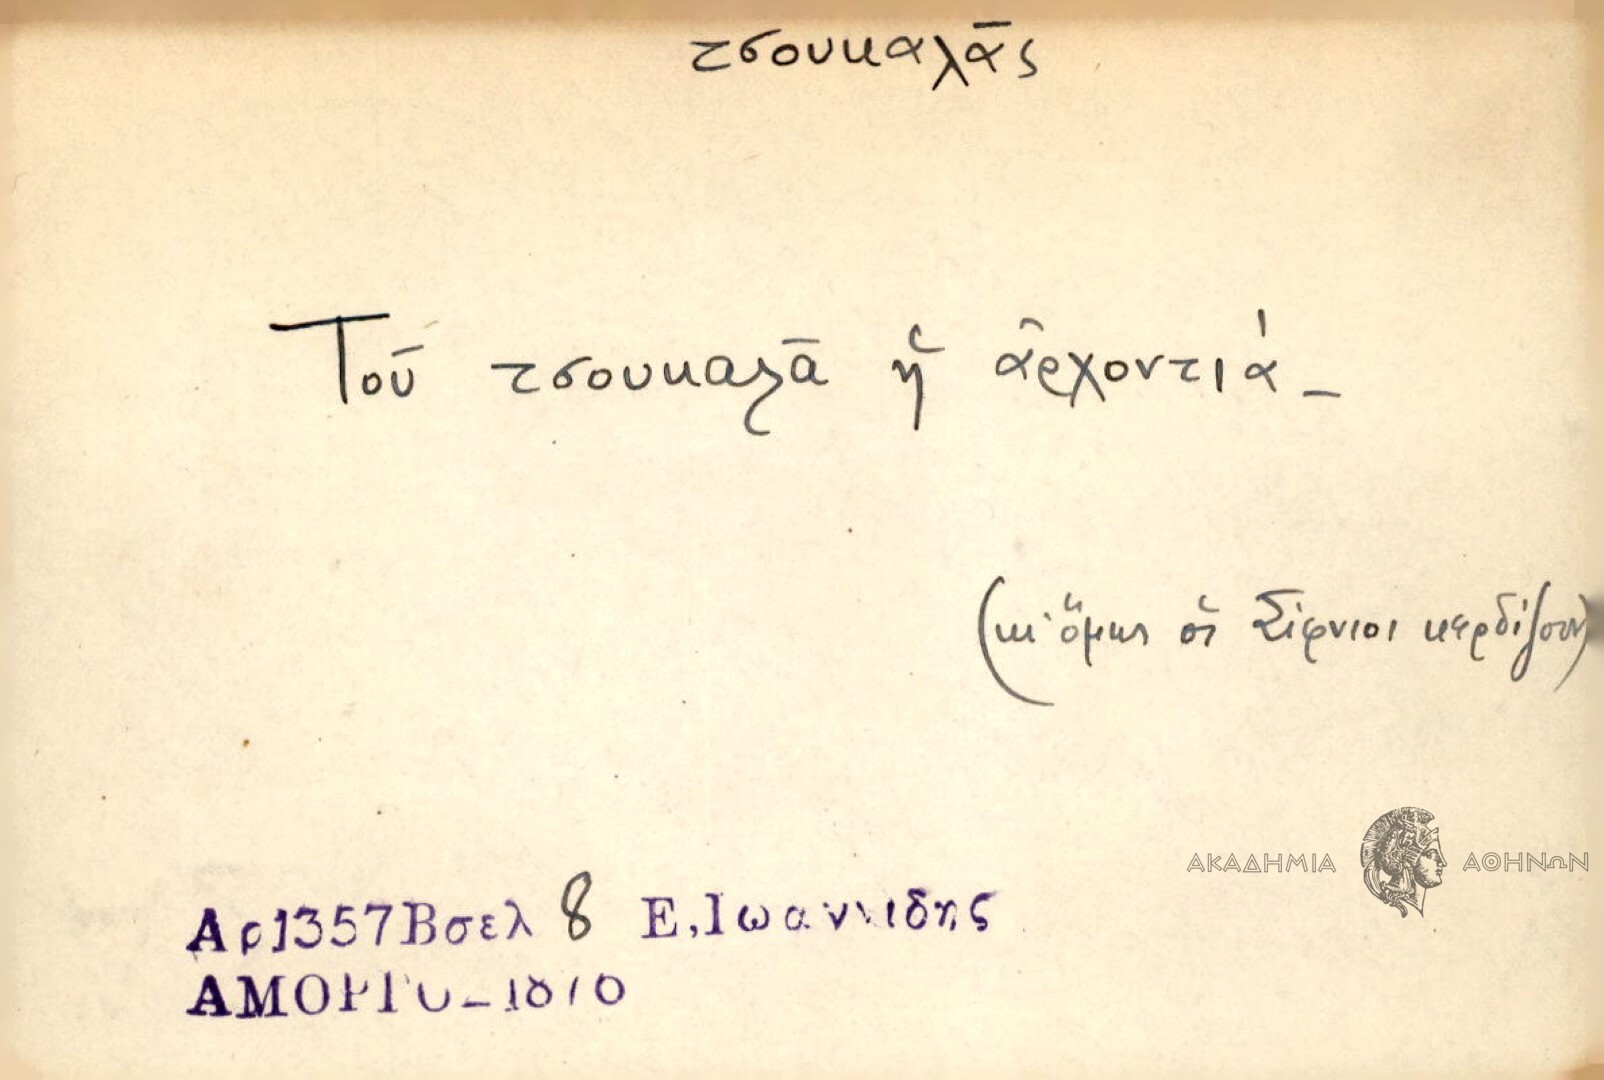 τσουκαλᾶς
Τοῦ τσουκαλᾶ ἡ ἀρχοντιά _
(κι' ὅμως οἱ Σίφνιοι κερδίζουν)
ΑΚΑΔΗΜΙΑ ΑΘΗΝΩΝ
Αρ1357Βσελ 8 Ε,Ιωαννιδης
ΑΜΟΡΓΟ